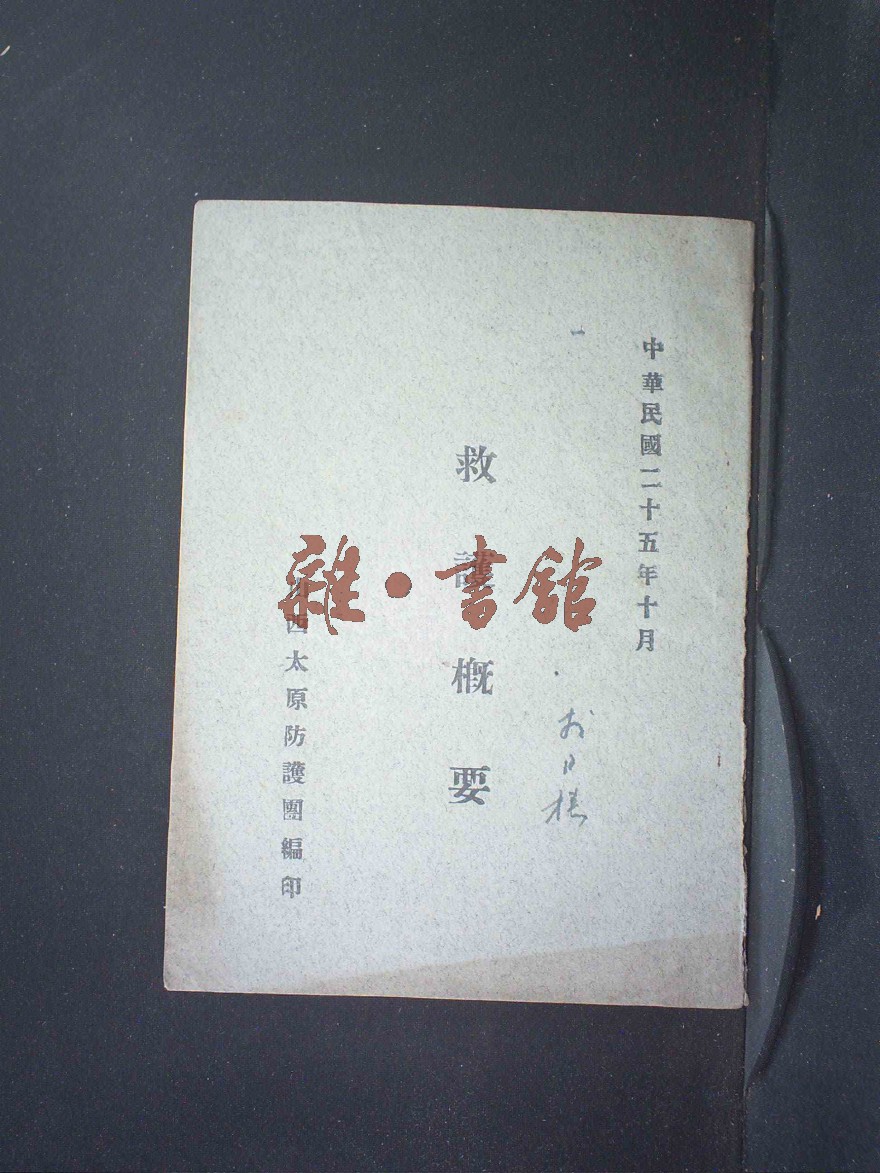 中華民國二十五年十月
一
救護概要
山西太原防護團編印
雜·書館